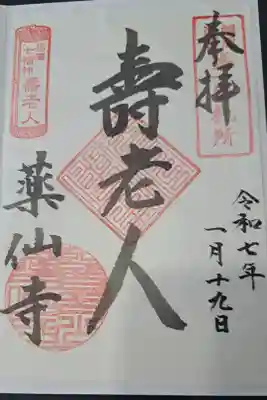 奉拝
令和七年
一月十九日
壽老人
七福神
壽老人
薬仙寺